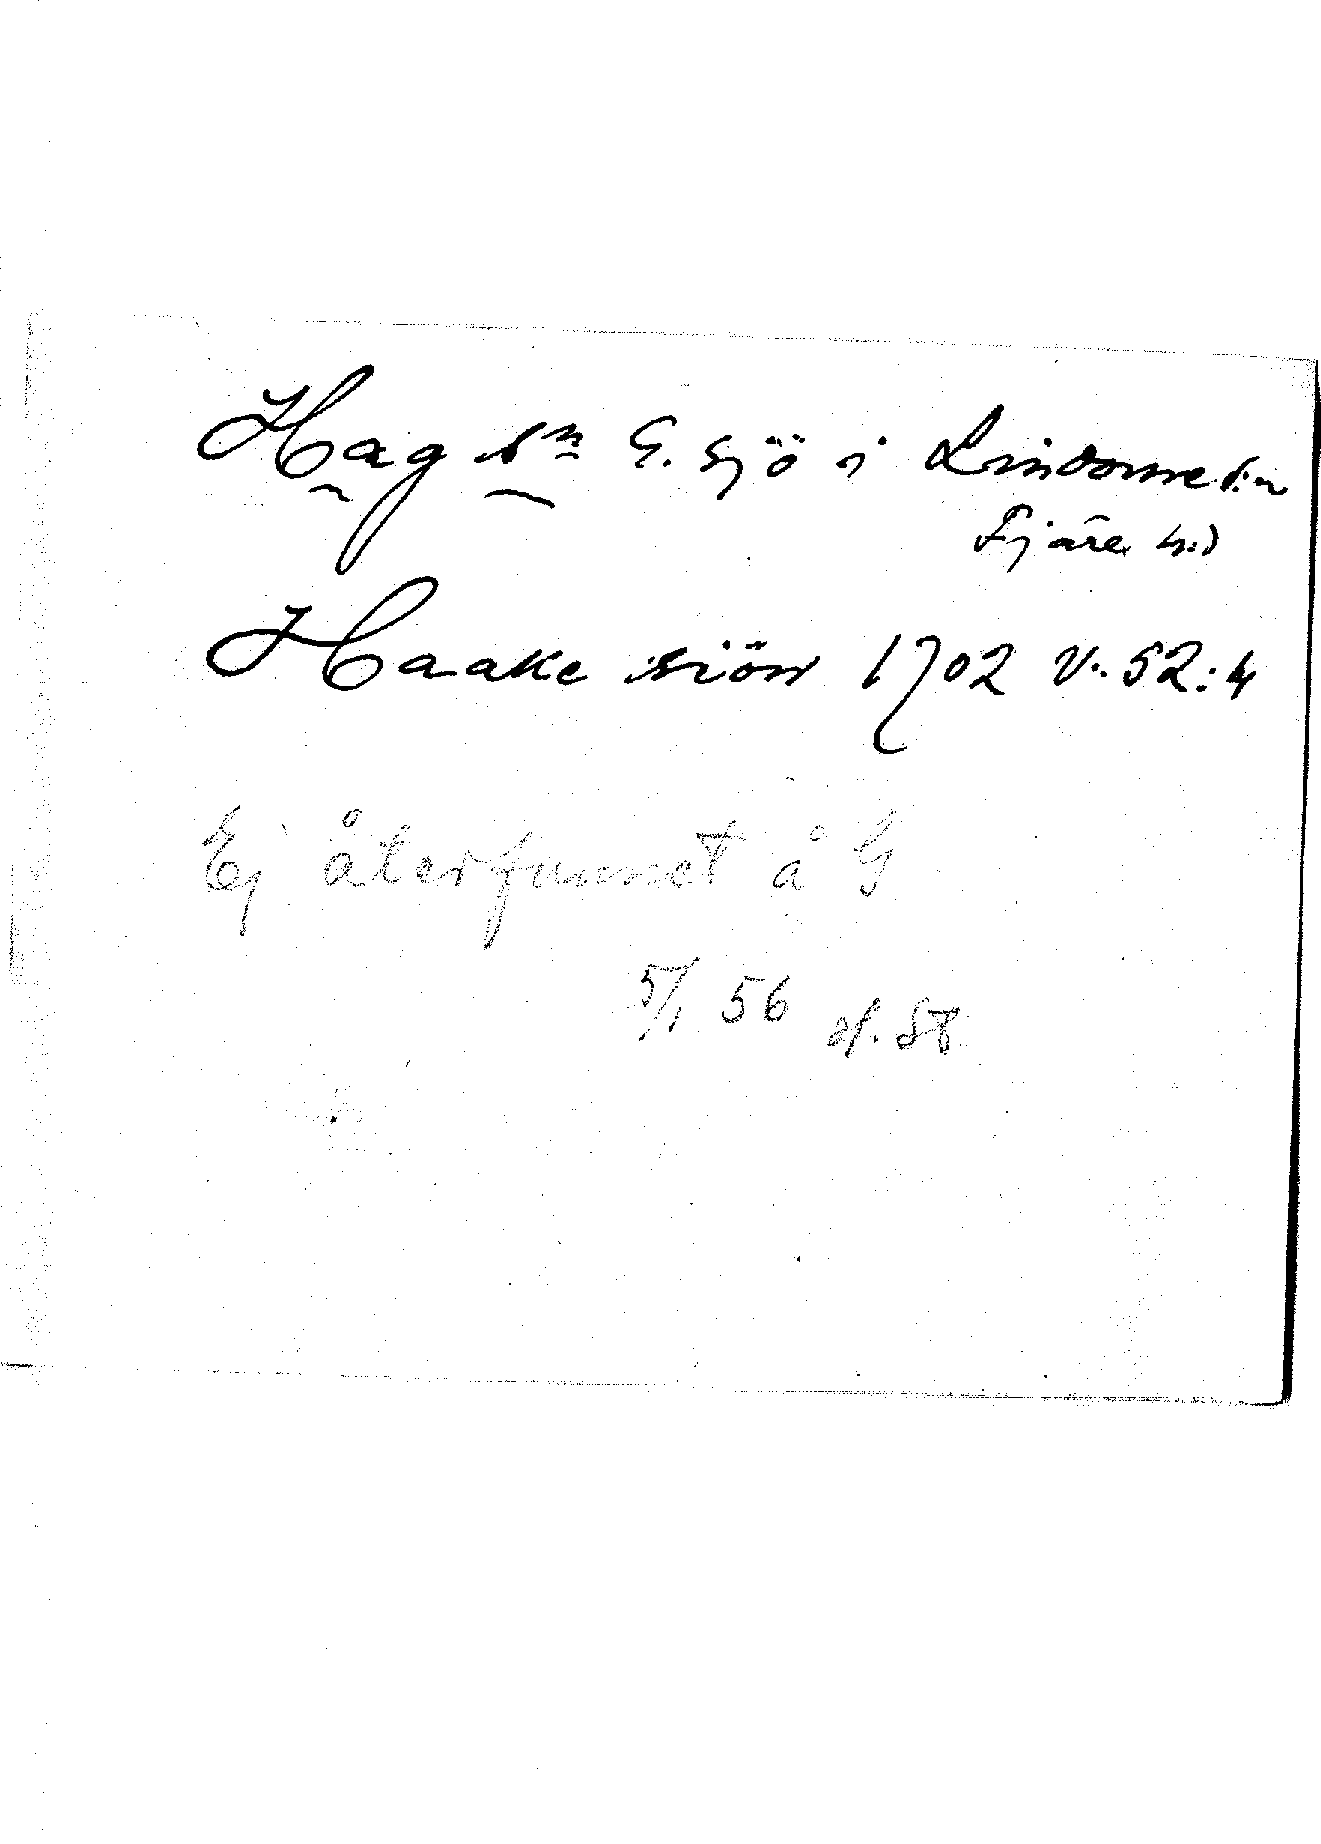 Hag sn G. sjö i Lindome s:n
Fjäre h:d
Haake siön 1702 V. 52:4
Ej återfunnet å G
5/1 56